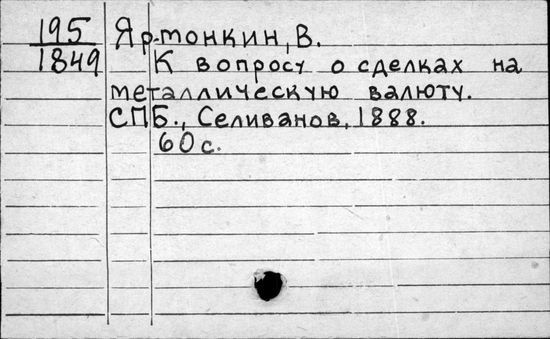 195
1849
Ярмонкин, В.
К вопросу о сделках на
металлическую валюту.
СПБ., Селиванов, 1888.
60 с.